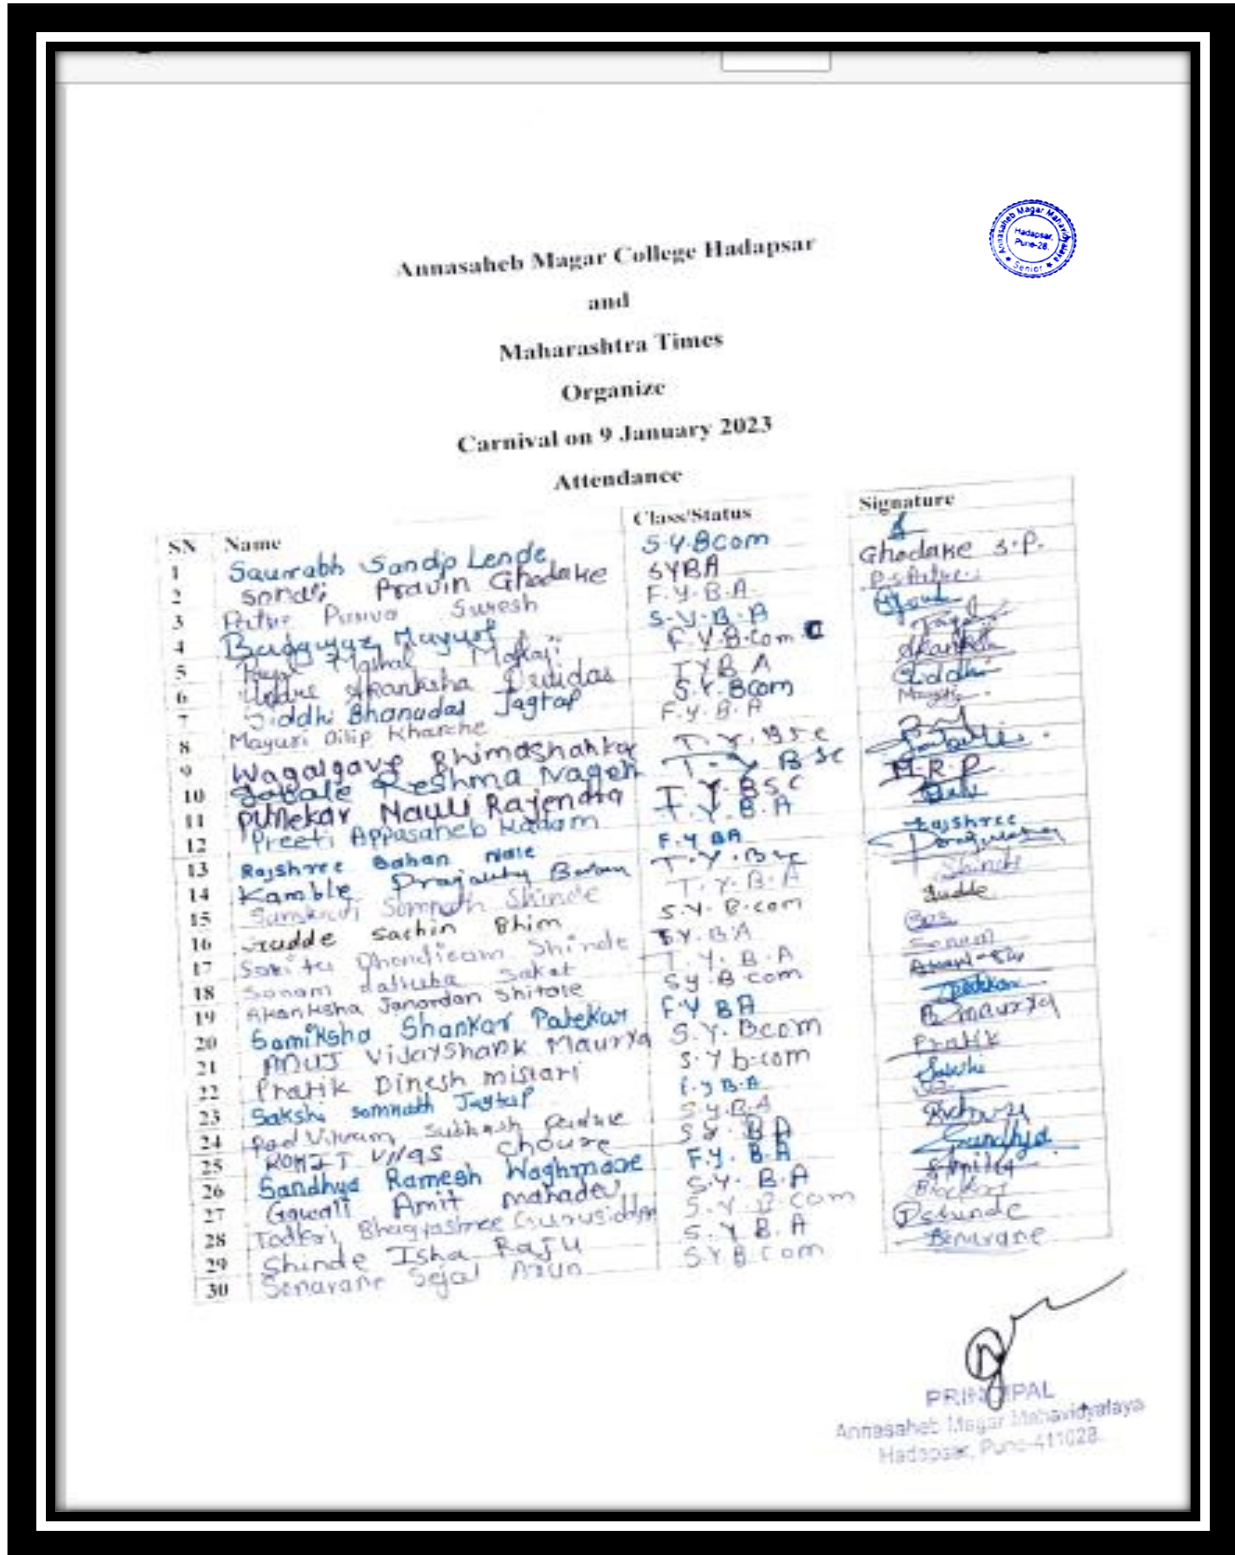 Annasaheb Magar Mahavidyalaya
Hadapsar,
Pune-28.
★ Senior ★
Annasaheb Magar College Hadapsar
and
Maharashtra Times
Organize
Carnival on 9 January 2023
Attendance
SN Name Class/Status Signature
1 Saurabh Sandip Lende S.Y.Bcom
2 Pravin Ghodake SYBA Ghodake S.P.
3 Suresh F.Y.B.A
4 S.Y.B.A
5 F.Y.B.com
6 Akanksha Devidas TYBA Akanksha
7 Siddhi Bhanudas Jagtap S.Y.Bcom Siddhi
8 Mayuri Dilip Kharche F.Y.B.A
9 Wagalgave Bhimashankar T.Y.BSC
10 Reshma Nagesh T.Y BSC
11 Punekar Mauli Rajendra T.Y.BSC M.R.P
12 Preeti Appasaheb Kadam F.Y.B.A
13 Rajshree Baban Nale F.Y BA Rajshree
14 Kamble T.Y.BSC
15 Somnath Shinde T.Y.B.A Shinde
16 Sachin Bhim S.Y.B.com
17 Shinde S.Y.B.A
18 Sonam Sakat T.Y.B.A Sonam
19 Akanksha Janardan Shitole Sy.B.com
20 Samiksha Shankar Patekar F.Y BA
21 Anuj Vijayshank Maurya S.Y.Bcom Maurya
22 Pratik Dinesh mistari S.Y b.com Pratik
23 Sakshi somnath Jagtap F.y B.A Sakshi
24 Subhash S.Y.B.A
25 ROHIT Vilas Choure S.Y. BA
26 Sandhya Ramesh Waghmare F.Y. B.A Sandhya
27 Gawali Amit mahadev S.Y. B.A
28 Todkari Bhagyashree S.Y.B.Com
29 Shinde Isha Raju S.Y B.A Shinde
30 Sonavane Sejal Arun S.Y.B.Com
PRINCIPAL
Annasaheb Magar Mahavidyalaya
Hadapsar, Pune-411028.